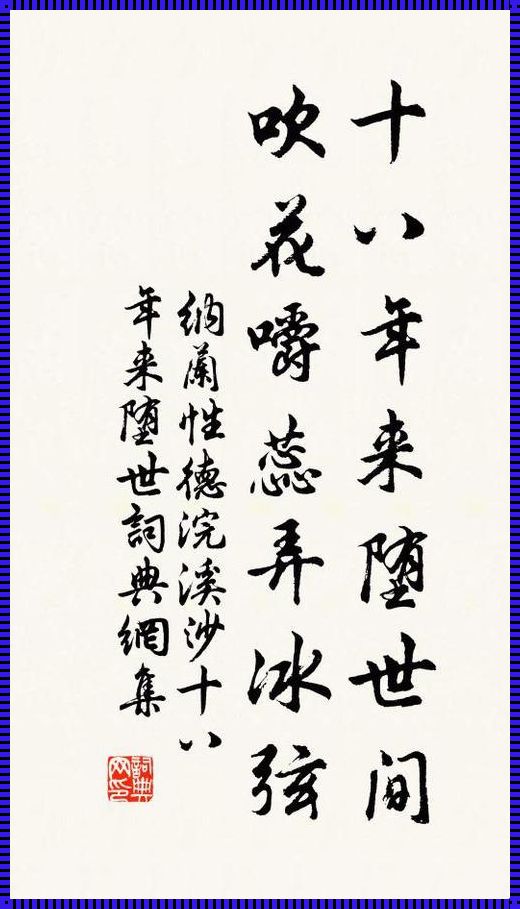 十八年来堕世间
吹花嚼蕊弄冰弦
纳蘭性德浣溪沙十八
年来堕世詞典網集
詞典
网印